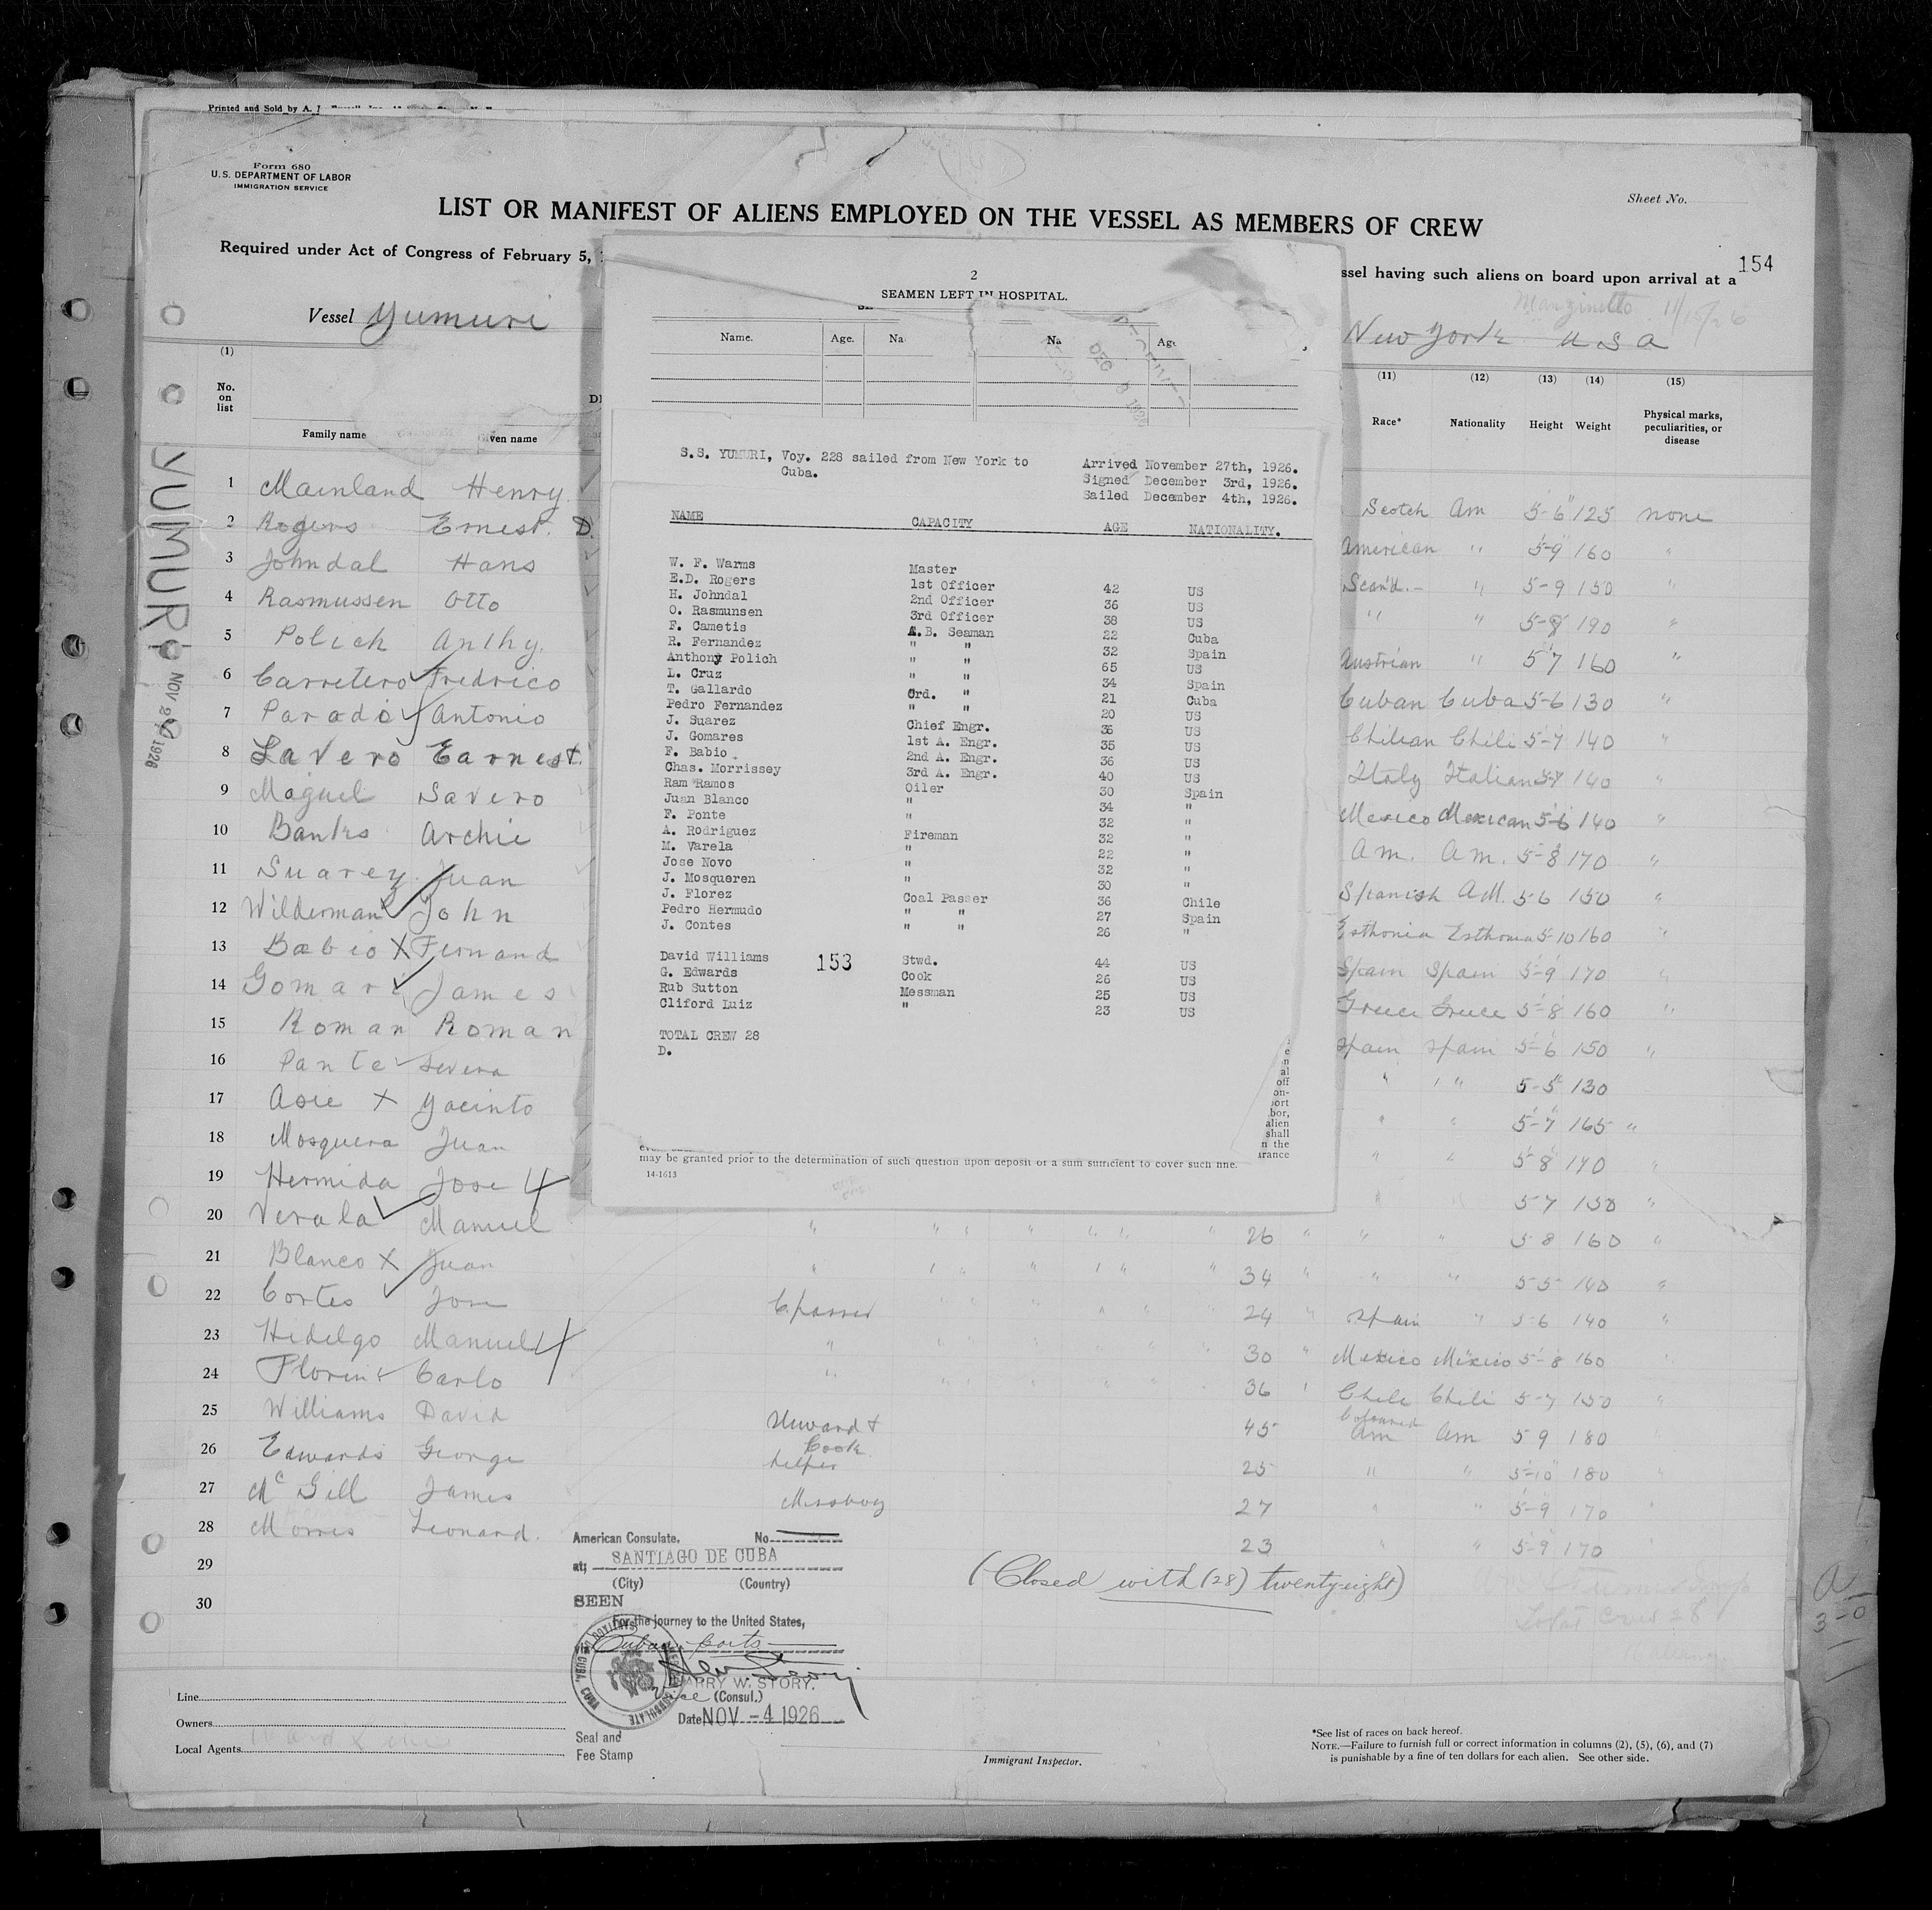 Printed and Sold by A.
Form 680
U.S. DEPARTMENT OF LABOR
IMMIGRATION SERVICE
Sheet No.
LIST OR MANIFEST OF ALIENS EMPLOYED ON THE VESSEL AS MEMBERS OF CREW
154
Required under Act of Congress of February 5,
ssel having such aliens on board upon arrival at a
Vessel Yumuri
New York U S A
(1)
No. on list
Family name Given name
(11) (12) (13) (14) (15)
Race* Nationality Height Weight Physical marks, peculiarities, or disease
YUMURI
NOV 1926
2
SEAMEN LEFT IN HOSPITAL.
Name. Age. Na Na Age
DEC 1926
S.S. YUMURI, Voy. 228 sailed from New York to
Cuba.
Arrived November 27th, 1926.
Signed December 3rd, 1926.
Sailed December 4th, 1926.
NAME CAPACITY AGE NATIONALITY.
W. F. Warms Master
E.D. Rogers 1st Officer 42 US
H. Johndal 2nd Officer 36 US
O. Rasmunsen 3rd Officer 38 US
F. Cametis A.B. Seaman 22 Cuba
R. Fernandez " " 32 Spain
Anthony Polich " " 65 US
L. Cruz " " 34 Spain
T. Gallardo Ord. " 21 Cuba
Pedro Fernandez " " 20 US
J. Suarez Chief Engr. 36 US
J. Gomares 1st A. Engr. 35 US
F. Babio 2nd A. Engr. 36 US
Chas. Morrissey 3rd A. Engr. 40 US
Ram Ramos Oiler 30 Spain
Juan Blanco " 34 "
F. Ponte " 32 "
A. Rodriguez Fireman 32 "
M. Varela " 22 "
Jose Novo " 32 "
J. Mosqueren " 30 "
J. Florez Coal Passer 36 Chile
Pedro Hermudo " " 27 Spain
J. Contes " " 26 "
David Williams 153 Stwd. 44 US
G. Edwards Cook 26 US
Rub Sutton Messman 25 US
Cliford Luiz " 23 US
TOTAL CREW 28
D.
al
off
on-
port
bor,
alien
shall
n the
arance
may be granted prior to the determination of such question upon deposit of a sum sufficient to cover such fine.
14-1613
1 Mainland Henry Scotch Am 5-6 125 none
2 Rogers Ernest. D. American " 5-9 160 "
3 Johndal Hans Scan'd.- " 5-9 150 "
4 Rasmussen Otto " " 5-8 190 "
5 Polich Anthy. Austrian " 5-7 160 "
6 Carretero Fredrico Cuban Cuba 5-6 130 "
7 Parodi Antonio Chilian Chili 5-7 140 "
8 Lavero Earnest. Italy Italian 5-7 140 "
9 Maguel Savero Mexico Mexican 5-6 140 "
10 Banks Archie Am. Am. 5-8 170 "
11 Suarez Juan Spanish AM. 5-6 150 "
12 Wilderman John Esthonia Esthonia 5-10 160 "
13 Babio X Fernand Spain Spain 5-9 170 "
14 Gomari James Greece Greece 5-8 160 "
15 Roman Roman Spain Spain 5-6 150 "
16 Pante Severa " " 5-5 130
17 Asie X Yacinto " " 5-7 165 "
18 Mosquera Juan " " 5-8 170 "
19 Hermida Jose " " 5-7 150 "
20 Verala Manuel " " " " " " " " 26 " " " 5-8 160 "
21 Blanco X Juan " " " " " " " 34 " " " 5-5 140 "
22 Cortes Jose C. passer " " " " " " " 24 " Spain " 5-6 140 "
23 Hidelgo Manuel " " " " " " " " 30 " Mexico Mexico 5-8 160 "
24 Florin Carlo " " " " " " " 36 " Chile Chili 5-7 150 "
25 Williams David Steward & Cook 45 Coloured Am Am 5 9 180 "
26 Edwards George helper 25 " " 5-10 180 "
27 McGill James Messboy 27 " " 5-9 170 "
28 Morris Leonard. 23 " " 5-9 170 "
29
30
(Closed with (28) twenty-eight)
Total crew 28
American Consulate. No
at; SANTIAGO DE CUBA
(City) (Country)
SEEN
For the journey to the United States,
via Cuban ports
HARRY W. STORY.
Vice (Consul.)
Date NOV -4 1926
Seal and
Fee Stamp
Line
Owners
Local Agents
Immigrant Inspector.
*See list of races on back hereof.
NOTE.—Failure to furnish full or correct information in columns (2), (5), (6), and (7)
is punishable by a fine of ten dollars for each alien. See other side.